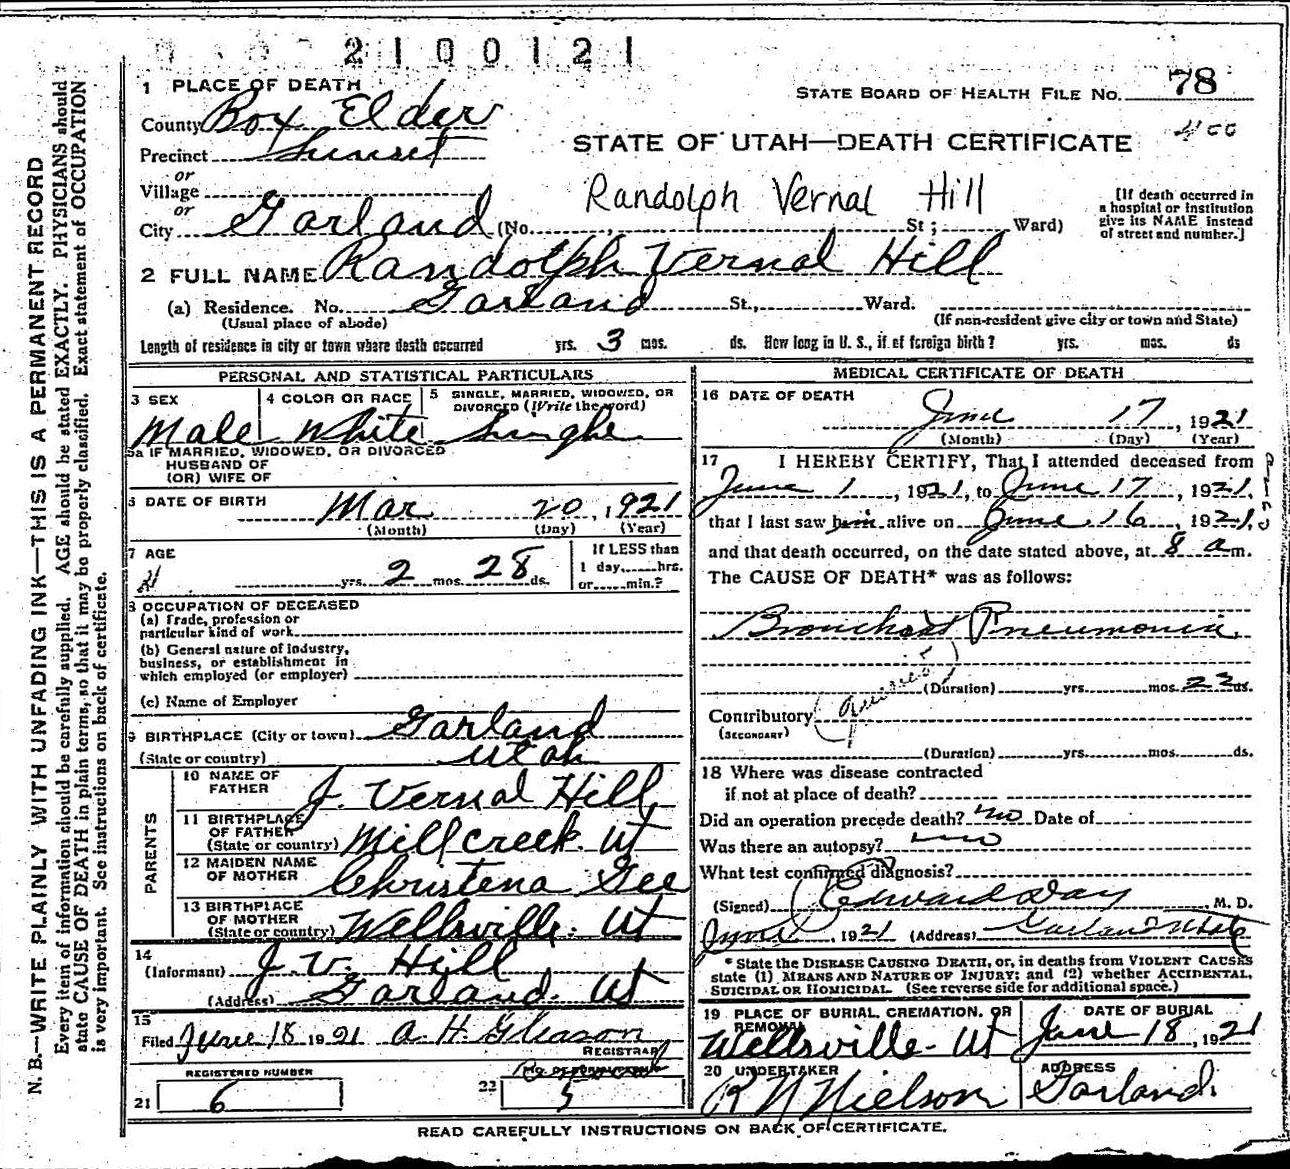 2100121
1 PLACE OF DEATH
STATE BOARD OF HEALTH FILE NO. 78
County Box Elder
400
Precinct Sunset
STATE OF UTAH—DEATH CERTIFICATE
or
Village
Randolph Vernal Hill
or
City Garland (No. St; Ward)
[If death occurred in
a hospital or institution
give its NAME instead
of street and number.]
2 FULL NAME Randolph Vernal Hill
(a) Residence. No. Garland St., Ward.
(Usual place of abode)
(If non-resident give city or town and State)
Length of residence in city or town where death occurred yrs. 3 mos. ds. How long in U. S., if of foreign birth? yrs. mos. ds
PERSONAL AND STATISTICAL PARTICULARS
3 SEX
4 COLOR OR RACE
5 SINGLE, MARRIED, WIDOWED, OR
DIVORCED (Write the word)
Male White Single
5a IF MARRIED, WIDOWED, OR DIVORCED
HUSBAND OF
(OR) WIFE OF
6 DATE OF BIRTH Mar 20, 1921
(Month) (Day) (Year)
7 AGE
yrs. 2 mos. 28 ds.
If LESS than
1 day, hrs.
or min.?
8 OCCUPATION OF DECEASED
(a) Trade, profession or
particular kind of work
(b) General nature of industry,
business, or establishment in
which employed (or employer)
(c) Name of Employer
9 BIRTHPLACE (City or town) Garland
(State or country) Utah
PARENTS
10 NAME OF
FATHER J. Vernal Hill
11 BIRTHPLACE
OF FATHER
(State or country) Millcreek. Ut
12 MAIDEN NAME
OF MOTHER Christena Gee
13 BIRTHPLACE
OF MOTHER
(State or country) Wellsville. Ut
14
(Informant) J. V. Hill
(Address) Garland. Ut
15
Filed June 18 1921 A. H. Gleason
REGISTRAR
REGISTERED NUMBER
21 6
22 5
MEDICAL CERTIFICATE OF DEATH
16 DATE OF DEATH
June 17, 1921
(Month) (Day) (Year)
17 I HEREBY CERTIFY, That I attended deceased from
June 1, 1921, to June 17, 1921.
that I last saw him alive on June 16, 1921,
and that death occurred, on the date stated above, at 8 a m.
The CAUSE OF DEATH* was as follows:
Bronchial Pneumonia
(Duration) yrs. mos. 22 ds.
Contributory
(SECONDARY)
(Duration) yrs. mos. ds.
18 Where was disease contracted
if not at place of death?
Did an operation precede death? no Date of
Was there an autopsy? no
What test confirmed diagnosis?
(Signed) Edward Day M. D.
June, 1921 (Address) Garland Utah
* State the DISEASE CAUSING DEATH, or, in deaths from VIOLENT CAUSES
state (1) MEANS AND NATURE OF INJURY; and (2) whether ACCIDENTAL,
SUICIDAL OR HOMICIDAL. (See reverse side for additional space.)
19 PLACE OF BURIAL, CREMATION, OR
REMOVAL
Wellsville- Ut
DATE OF BURIAL
June 18, 1921
20 UNDERTAKER
R N Nielson
ADDRESS
Garland.
READ CAREFULLY INSTRUCTIONS ON BACK OF CERTIFICATE.
N. B.—WRITE PLAINLY WITH UNFADING INK—THIS IS A PERMANENT RECORD
Every item of information should be carefully supplied. AGE should be stated EXACTLY. PHYSICIANS should
state CAUSE OF DEATH in plain terms, so that it may be properly classified. Exact statement of OCCUPATION
is very important. See instructions on back of certificate.